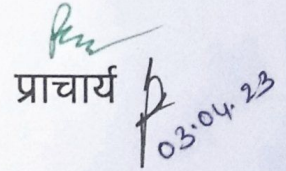 प्राचार्य
03.04.23